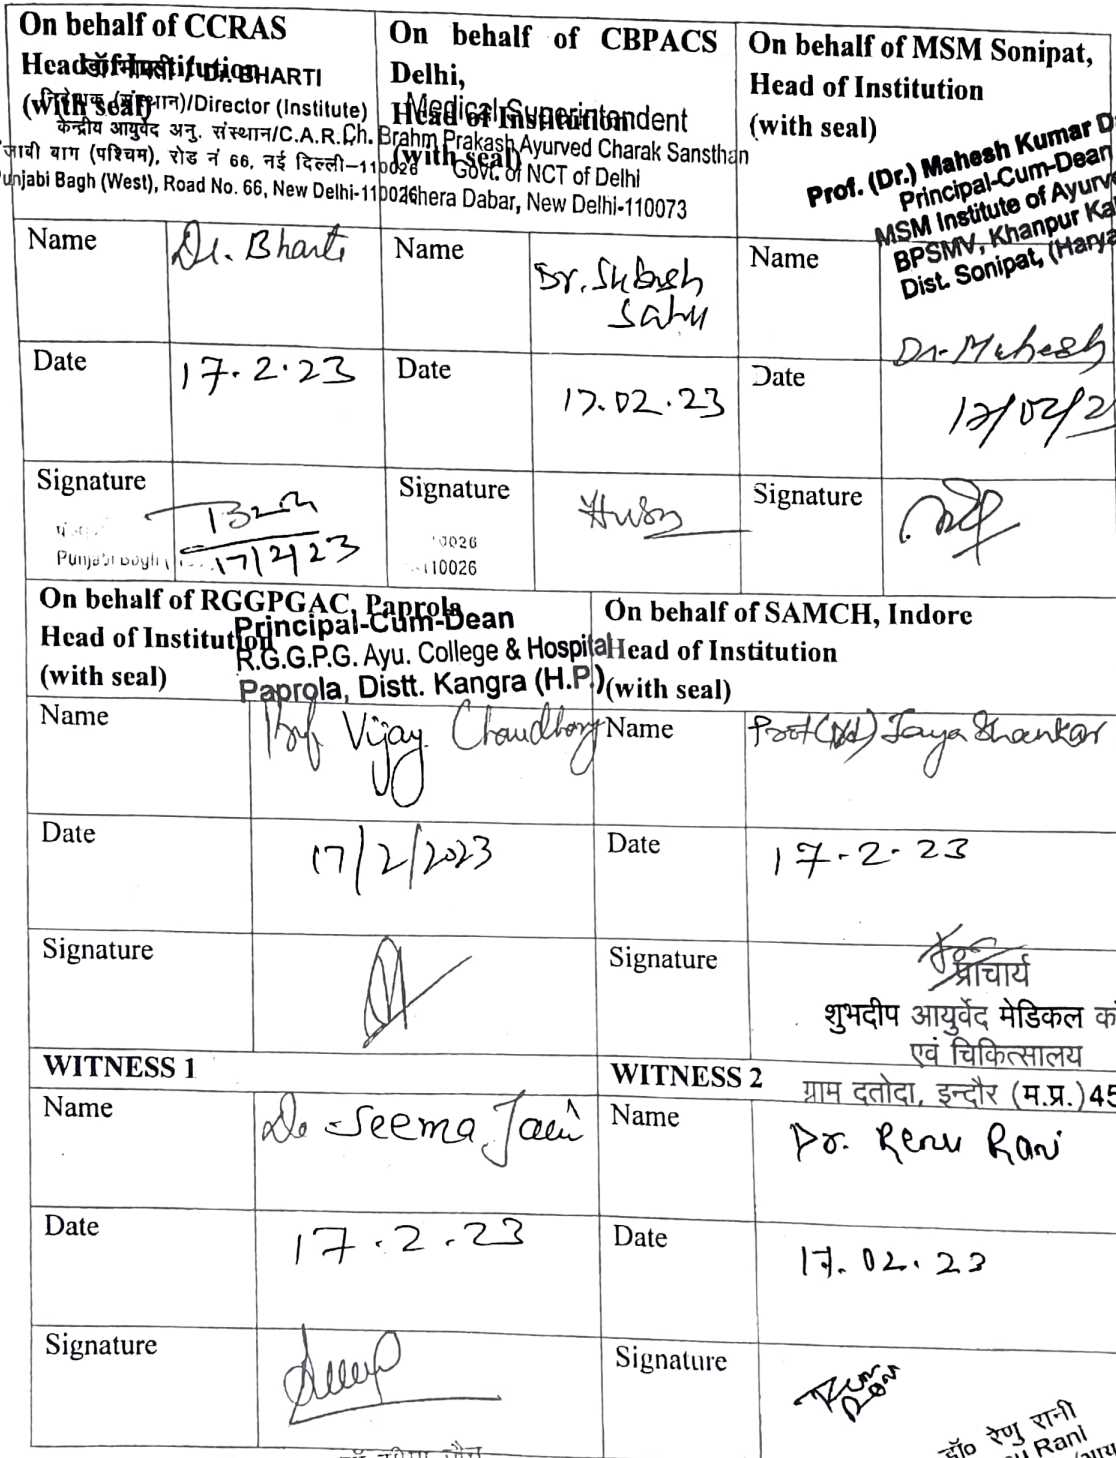 On behalf of CCRAS
Head of Institution
(with seal)
डॉ. भारती / Dr. BHARTI
निदेशक (संस्थान)/Director (Institute)
केन्द्रीय आयुर्वेद अनु. संस्थान/C.A.R.
जाबी बाग (पश्चिम), रोड नं 66, नई दिल्ली-110026
unjabi Bagh (West), Road No. 66, New Delhi-110026
On behalf of CBPACS
Delhi,
Head of Institution
(with seal)
Medical Superintendent
Ch. Brahm Prakash Ayurved Charak Sansthan
Govt. of NCT of Delhi
hera Dabar, New Delhi-110073
On behalf of MSM Sonipat,
Head of Institution
(with seal)
Prof. (Dr.) Mahesh Kumar D
Principal-Cum-Dean
MSM Institute of Ayurv
BPSMV, Khanpur Ka
Dist. Sonipat, (Harya
Name Dr. Bharti Name Dr. Subash Sahu Name Dr. Mahesh
Date 17.2.23 Date 17.02.23 Date 17/02/2
Signature 17/2/23 Signature Signature
Punjabi Bagh
10026
110026
On behalf of RGGPGAC, Paprola
Head of Institution
(with seal)
Principal-Cum-Dean
R.G.G.P.G. Ayu. College & Hospital
Paprola, Distt. Kangra (H.P.)
On behalf of SAMCH, Indore
Head of Institution
(with seal)
Name Prof Vijay Chaudhary Name Prof (Dr) Jaya Shankar
Date 17/2/2023 Date 17-2-23
Signature Signature
प्राचार्य
शुभदीप आयुर्वेद मेडिकल कॉ
एवं चिकित्सालय
ग्राम दतोदा, इन्दौर (म.प्र.)45
WITNESS 1 WITNESS 2
Name Dr Seema Jain Name Dr. Renu Rani
Date 17.2.23 Date 17.02.23
Signature Signature Renu Rani
डॉ० रेणु रानी
u Rani